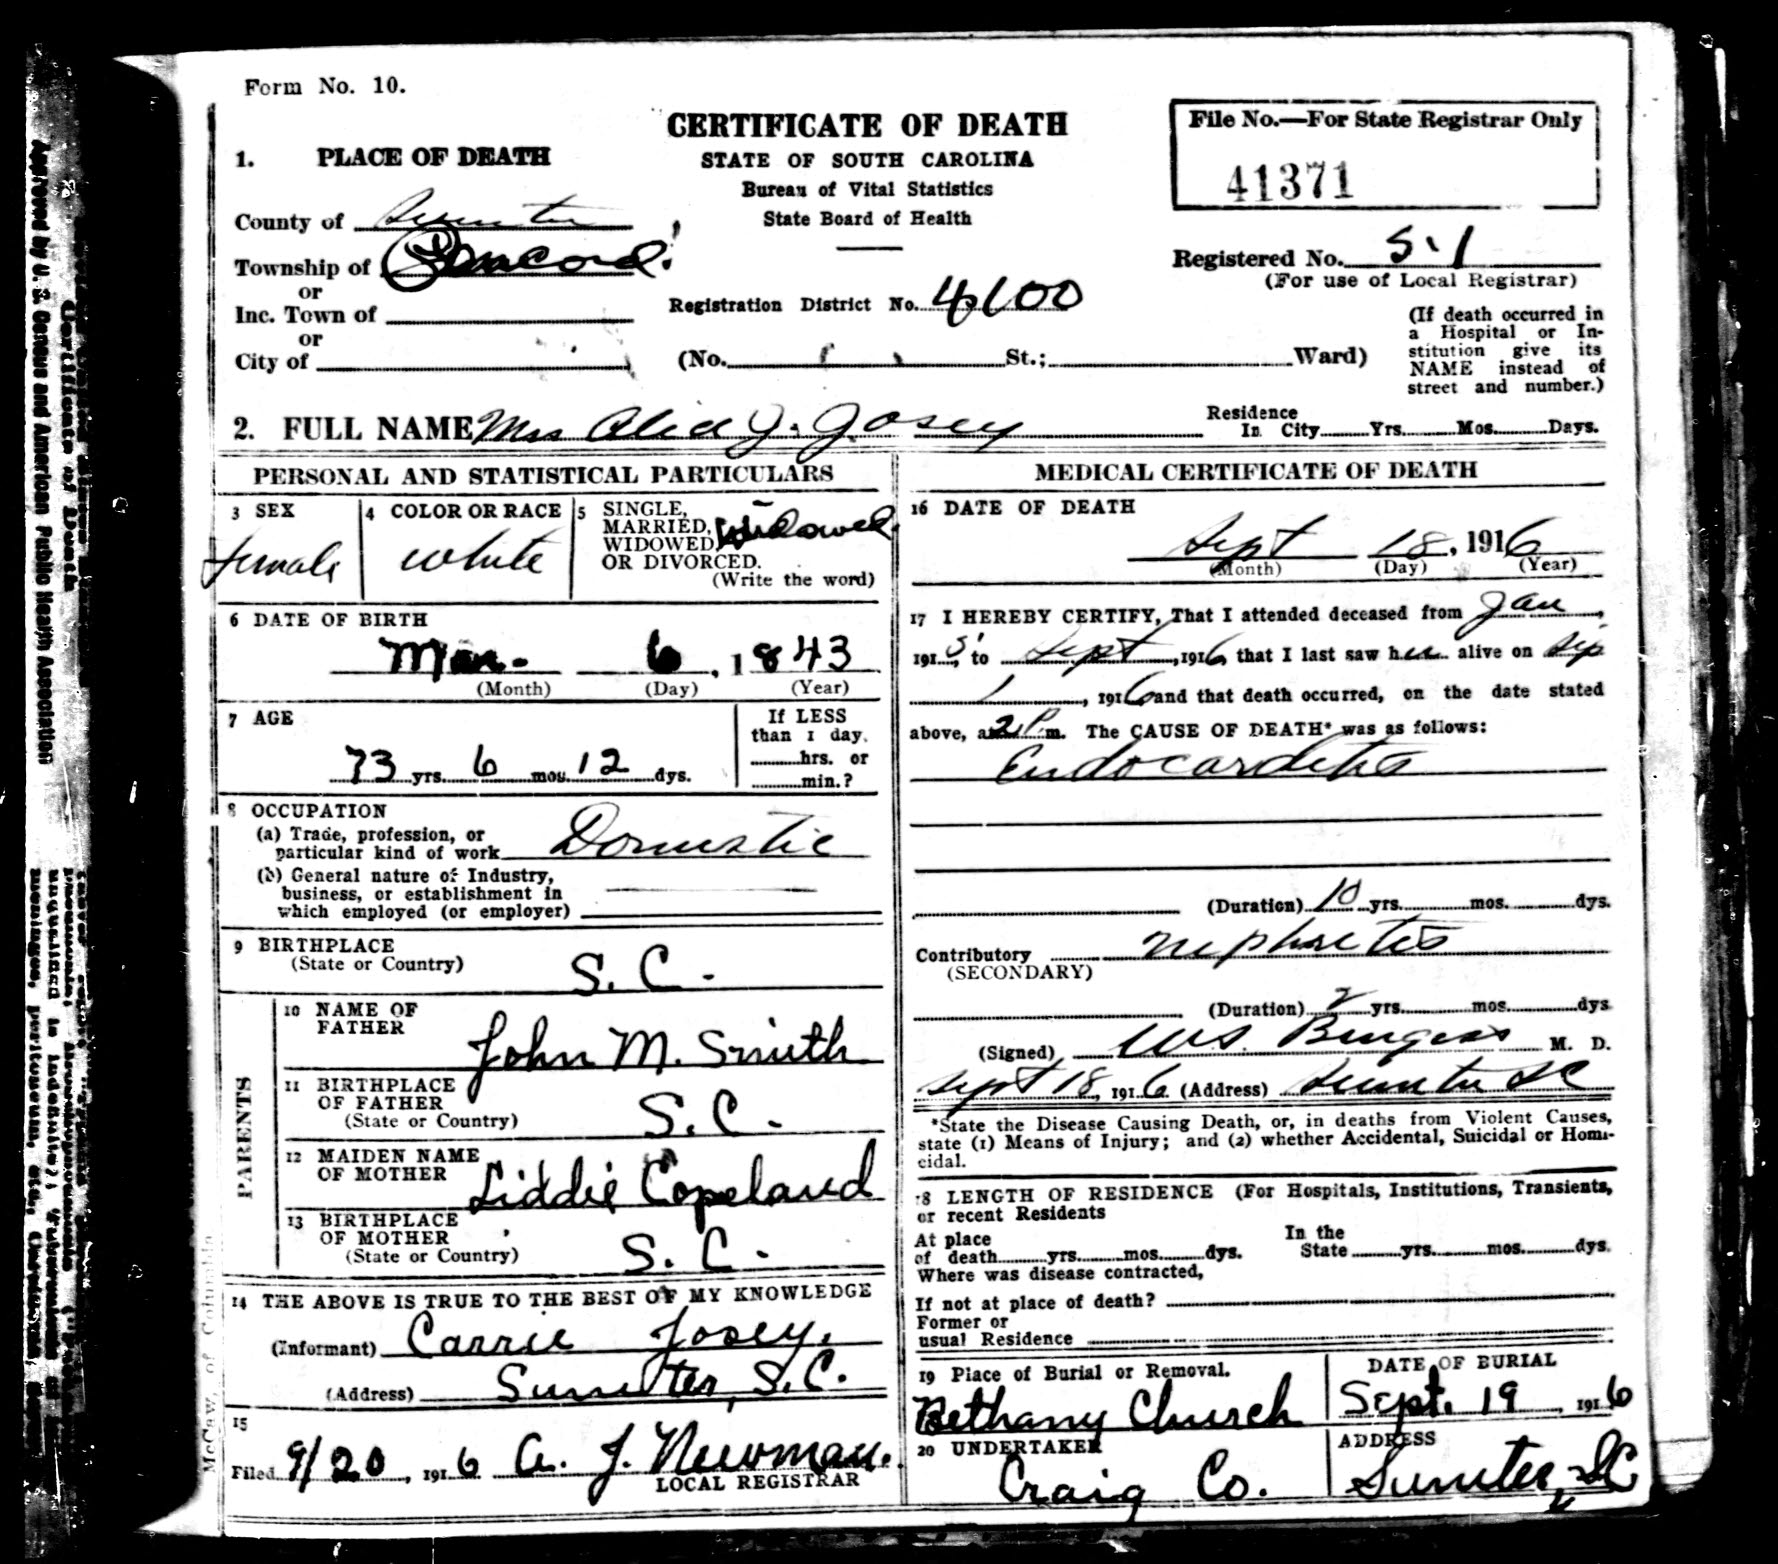 Form No. 10.
CERTIFICATE OF DEATH
STATE OF SOUTH CAROLINA
Bureau of Vital Statistics
State Board of Health
File No.—For State Registrar Only
41371
1. PLACE OF DEATH
County of Sumter
Township of Concord
or
Inc. Town of
or
City of
Registration District No. 4100
Registered No. 51
(For use of Local Registrar)
(No. St.; Ward)
(If death occurred in
a Hospital or In-
stitution give its
NAME instead of
street and number.)
2. FULL NAME Mrs Alice J. Josey
Residence
In City Yrs. Mos. Days.
PERSONAL AND STATISTICAL PARTICULARS
3 SEX
female
4 COLOR OR RACE
white
5 SINGLE,
MARRIED,
WIDOWED
OR DIVORCED.
(Write the word)
Widowed
6 DATE OF BIRTH
Mar. 6, 1843
(Month) (Day) (Year)
7 AGE
73 yrs. 6 mos 12 dys.
If LESS
than 1 day.
hrs. or
min.?
8 OCCUPATION
(a) Trade, profession, or
particular kind of work Domestic
(b) General nature of Industry,
business, or establishment in
which employed (or employer)
9 BIRTHPLACE
(State or Country) S. C.
PARENTS
10 NAME OF
FATHER John M. Smith
11 BIRTHPLACE
OF FATHER
(State or Country) S. C.
12 MAIDEN NAME
OF MOTHER Liddie Copeland
13 BIRTHPLACE
OF MOTHER
(State or Country) S. C.
14 THE ABOVE IS TRUE TO THE BEST OF MY KNOWLEDGE
(Informant) Carrie Josey,
(Address) Sumter, S.C.
15
Filed 9/20, 1916 A. J. Newman.
LOCAL REGISTRAR
MEDICAL CERTIFICATE OF DEATH
16 DATE OF DEATH
Sept 18, 1916
(Month) (Day) (Year)
17 I HEREBY CERTIFY, That I attended deceased from Jan,
1915, to Sept, 1916, that I last saw her alive on Sep
1, 1916 and that death occurred, on the date stated
above, at 2 P. m. The CAUSE OF DEATH* was as follows:
Endocarditis
(Duration) 10 yrs. mos. dys.
Contributory Nephritis
(SECONDARY)
(Duration) 2 yrs. mos. dys
(Signed) W.S. Burgess M. D.
Sept 18, 1916. (Address) Sumter SC
*State the Disease Causing Death, or, in deaths from Violent Causes,
state (1) Means of Injury; and (2) whether Accidental, Suicidal or Homi-
cidal.
18 LENGTH OF RESIDENCE (For Hospitals, Institutions, Transients,
or recent Residents
At place
of death yrs. mos. dys.
In the
State yrs. mos. dys.
Where was disease contracted,
If not at place of death?
Former or
usual Residence
19 Place of Burial or Removal.
Bethany Church
DATE OF BURIAL
Sept. 19, 1916
20 UNDERTAKER
Craig Co.
ADDRESS
Sumter, SC
McCaw, of Columbia
Approved by U. S. Census and American Public Health Association
Certificate of Death